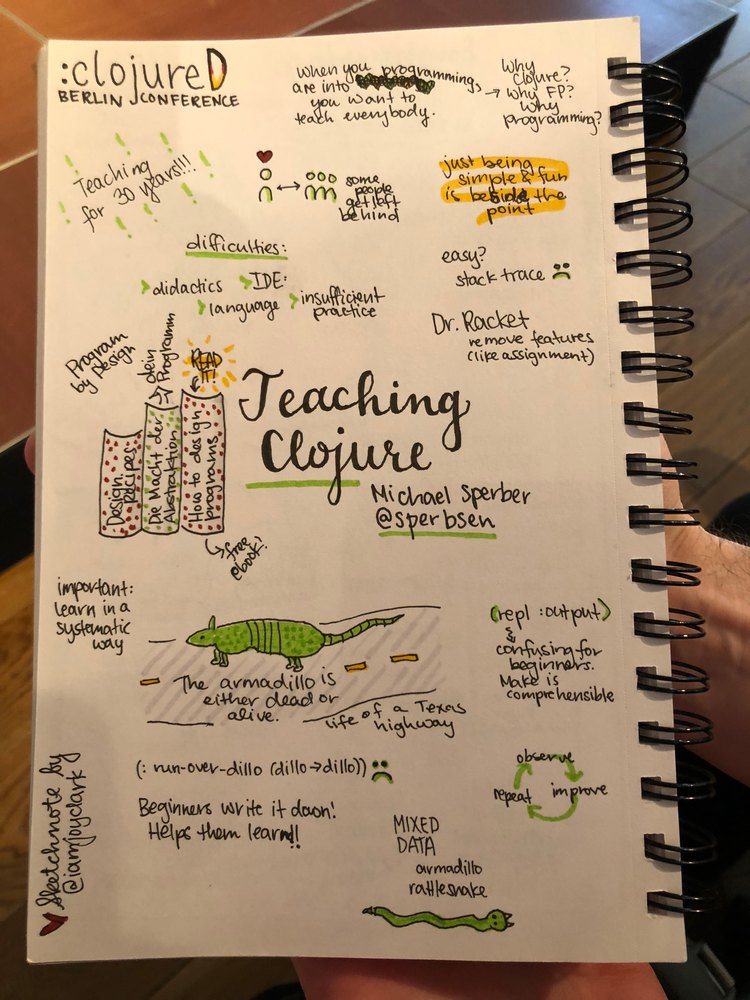 :clojureD
BERLIN CONFERENCE
when you programming,
are into
you want to
teach everybody.
→ Why
Clojure?
Why FP?
Why
programming?
Teaching
for 30 years!!!
some
people
get left
behind
just being
simple & fun
is beside the
point
difficulties:
didactics
IDE:
language
insufficient
practice
easy?
stack trace
Dr. Racket
remove features
(like assignment)
Program
by Design
Dein
Programm
READ
IT!
Design
Recipes
Die Macht der
Abstraktion
How to design
programs
free
ebook!
Teaching
Clojure
Michael Sperber
@sperbsen
important:
learn in a
systematic
way
The armadillo is
either dead or
alive.
life of a Texas
highway
(repl :output)
confusing for
beginners.
Make is
comprehensible
(: run-over-dillo (dillo → dillo))
Beginners write it down!
Helps them learn!!
observe
improve
repeat
MIXED
DATA
armadillo
rattlesnake
Sketchnote by
@iamjoyclark